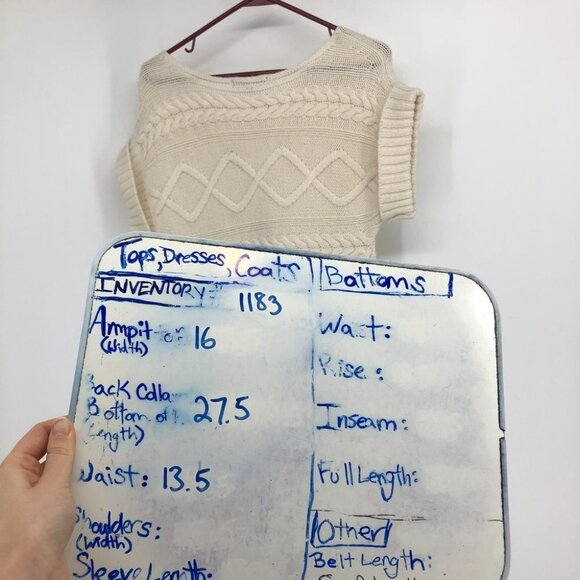 Tops, Dresses, Coats
INVENTORY# 1183
Armpit 16
(Width)
Back Colla
Bottom of 27.5
Length)
Waist: 13.5
Shoulders:
(Width)
Sleeve Length:
Bottoms
Wa t:
Rise:
Inseam:
Full Length:
Other
Belt Length: